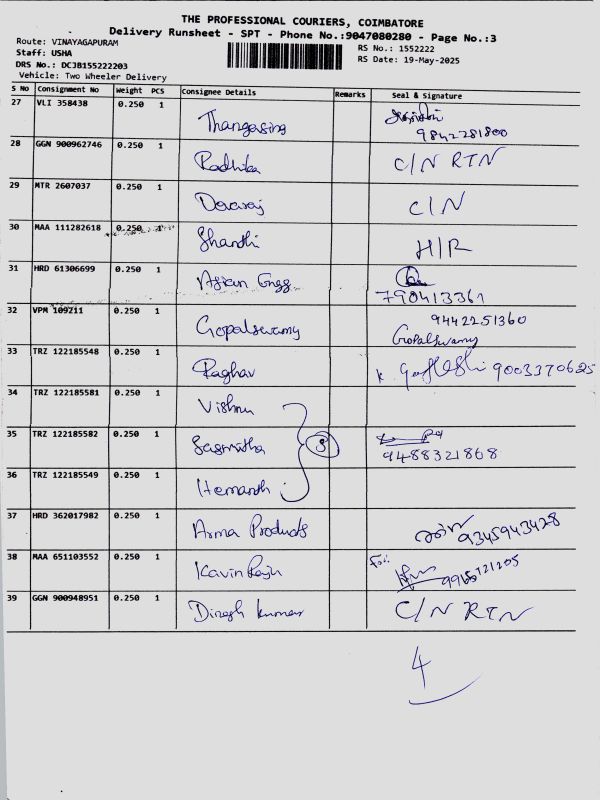 THE PROFESSIONAL COURIERS, COIMBATORE
Delivery Runsheet - SPT - Phone No.:9047080280 - Page No.:3
Route: VINAYAGAPURAM
RS No.: 1552222
Staff: USHA
RS Date: 19-May-2025
DRS No.: DCJB155222203
Vehicle: Two Wheeler Delivery
S No Consignment No Weight PCS Consignee Details Remarks Seal & Signature
27 VLI 358438 0.250 1 Thangasing
9842281800
28 GGN 900962746 0.250 1 Radhika C/N RTN
29 MTR 2607037 0.250 1 Devaraj C/N
30 MAA 111282618 0.250 1 Shanthi H/R
31 HRD 61306699 0.250 1 Asian Engg
790413361
32 VPM 109211 0.250 1 Gopalswamy 9442251360
Gopalswamy
33 TRZ 122185548 0.250 1 Raghav 9003370625
34 TRZ 122185581 0.250 1 Vishnu
35 TRZ 122185582 0.250 1 Sasmitha 3
9488321868
36 TRZ 122185549 0.250 1 Hemanth
37 HRD 362017982 0.250 1 Arma Products 9345943428
38 MAA 651103552 0.250 1 Kavin Raju For:
39 GGN 900948951 0.250 1 Dinesh Kumar C/N RTN
4